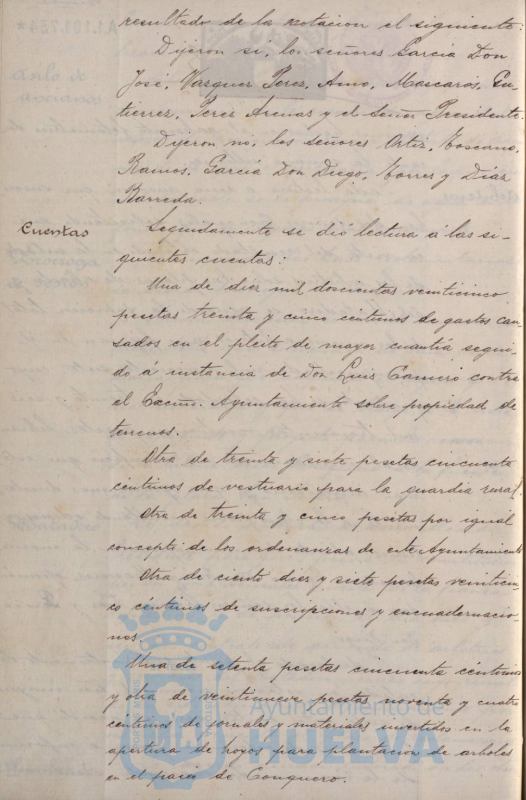 resultado de la votacion el siguiente:
Dijeron si, los señores García Don
José, Vazquez Perez, Amo, Mascarós, Gu-
tierrez, Perez Arenas y el Señor Presidente.
Dijeron no, los señores Ortiz, Toscano,
Ramos, García Don Diego, Torres y Díaz
Barreda.
Cuentas
Seguidamente se dió lectura á las si-
guientes cuentas:
Una de diez mil doscientas veinticinco
pesetas treinta y cinco céntimos de gastos cau-
sados en el pleito de mayor cuantiá segui-
do á instancia de Don Luis Gamero contra
el Excmo. Ayuntamiento sobre propiedad de
terrenos.
Otra de treinta y siete pesetas cincuenta
céntimos de vestuario para la guardia rural.
Otra de treinta y cinco pesetas por igual
concepto de los ordenanzas de este Ayuntamiento
Otra de ciento diez y siete pesetas veinticin-
co céntimos de suscripciones y encuadernacio-
nes.
Una de setenta pesetas cincuenta céntimos
y otra de veintinueve pesetas noventa y cuatro
céntimos de jornales y materiales invertidos en la
apertura de hoyos para plantacion de arboles
en el paseo de Conquero.
Ayuntamiento de
HUELVA